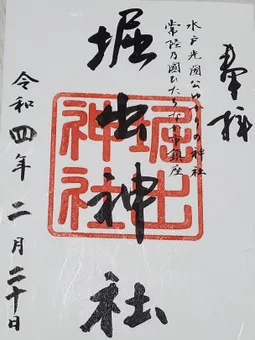 奉拝
水戸光圀公ゆかりの神社
常陸乃國ひたちなか市鎮座
堀出神社
堀出
神社
令和四年二月二十日